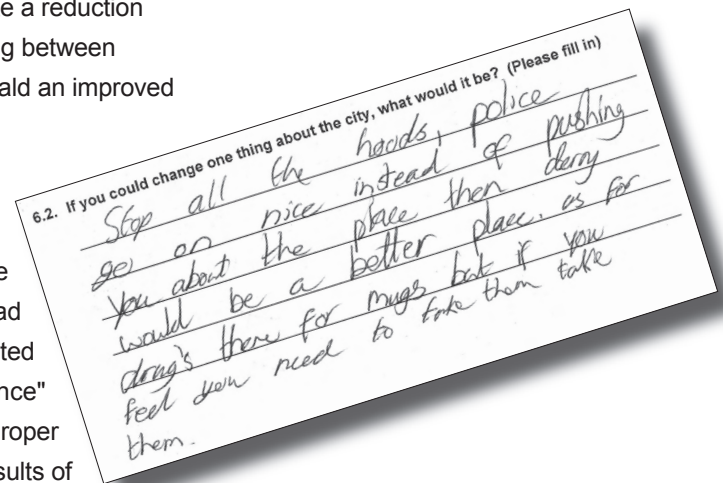 e a reduction
g between
ald an improved
6.2. If you could change one thing about the city, what would it be? (Please fill in)
Stop all the hoods, police
go on nice instead of pushing
you about the place then derry
would be a better place. as for
drug's there for mugs but if you
feel you need to take them take
them.
e
ad
ted
nce"
roper
sults of